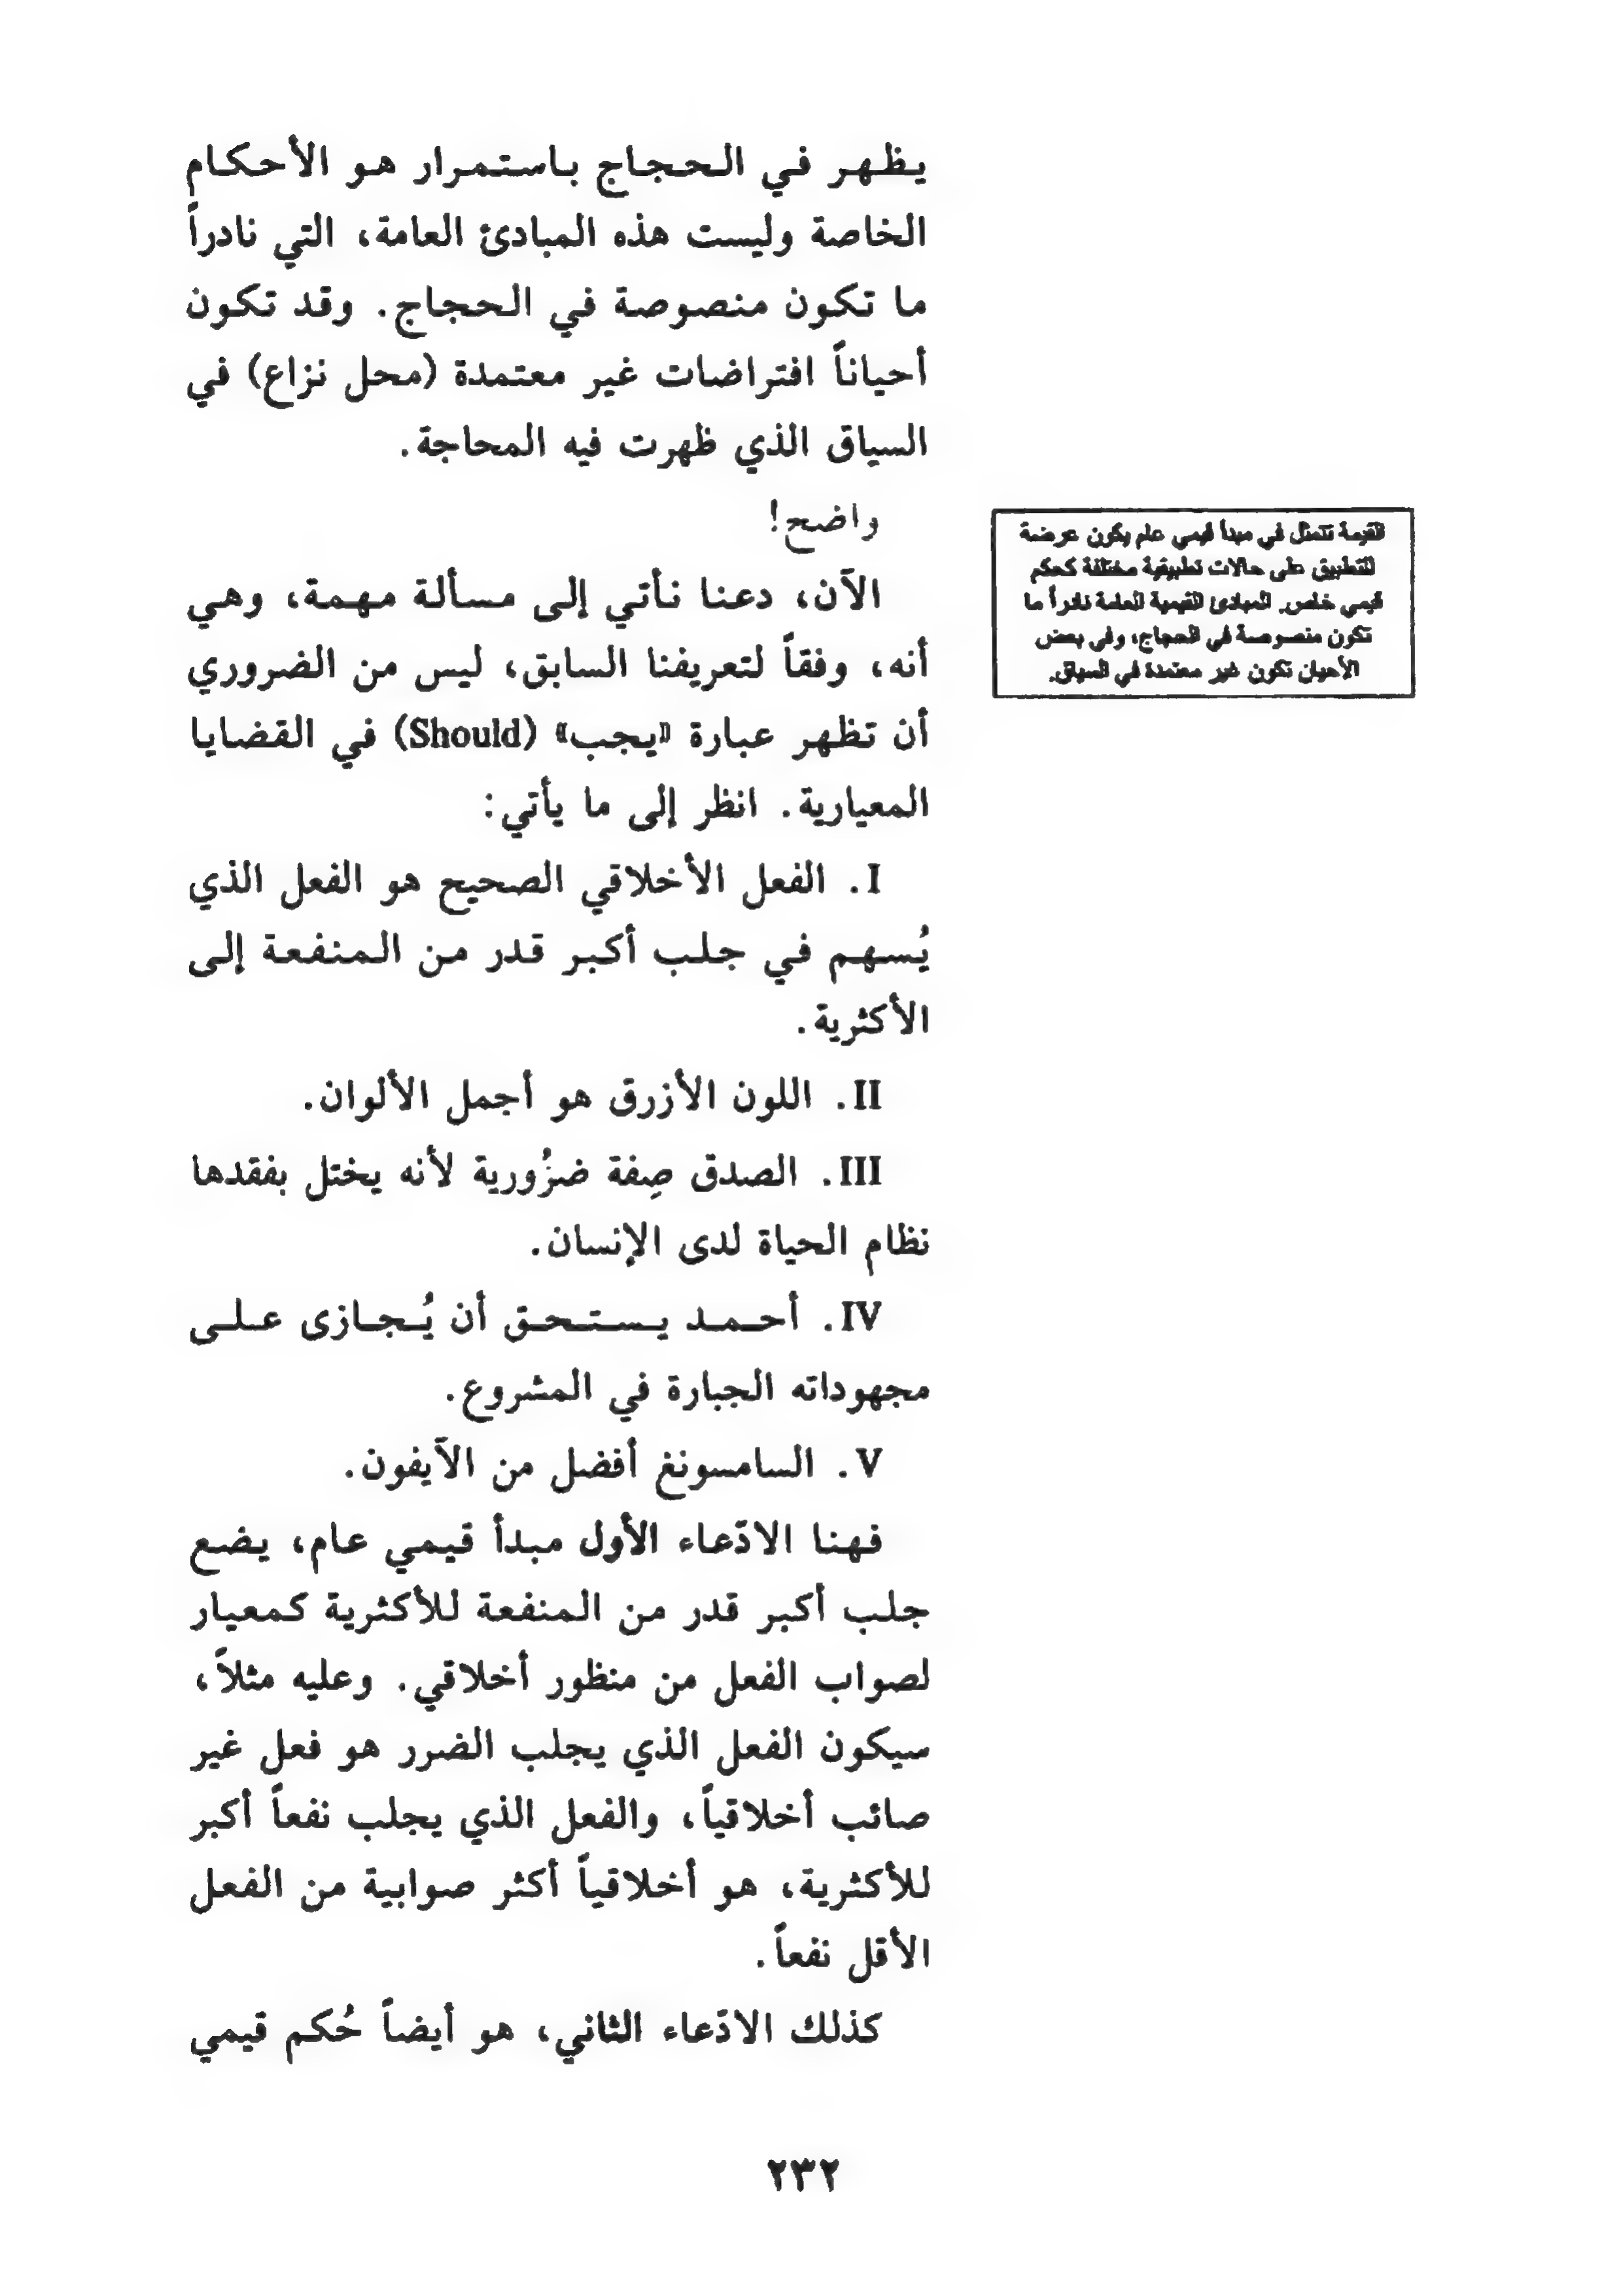 يظهر في الحجاج باستمرار هو الأحكام
الخاصة وليست هذه المبادئ العامة، التي نادراً
ما تكون منصوصة في الحجاج. وقد تكون
أحياناً افتراضات غير معتمدة (محل نزاع) في
السياق الذي ظهرت فيه المحاجة.
واضح!
القيمة تتمثل في مبدأ قيمي عام يكون عرضة
للتطبيق على حالات تطبيقية مختلفة كحكم
قيمي خاص. المبادئ القيمية العامة نادراً ما
تكون منصوصة في الحجاج، وفي بعض
الأحيان تكون غير معتمدة في السياق.
الآن، دعنا نأتي إلى مسألة مهمة، وهي
أنه، وفقاً لتعريفنا السابق، ليس من الضروري
أن تظهر عبارة «يجب» (Should) في القضايا
المعيارية. انظر إلى ما يأتي:
I. الفعل الأخلاقي الصحيح هو الفعل الذي
يُسهم في جلب أكبر قدر من المنفعة إلى
الأكثرية.
II. اللون الأزرق هو أجمل الألوان.
III. الصدق صِفة ضرُورية لأنه يختل بفقدها
نظام الحياة لدى الإنسان.
IV. أحمد يستحق أن يُجازى على
مجهوداته الجبارة في المشروع.
V. السامسونغ أفضل من الآيفون.
فهنا الادّعاء الأول مبدأ قيمي عام، يضع
جلب أكبر قدر من المنفعة للأكثرية كمعيار
لصواب الفعل من منظور أخلاقي. وعليه مثلاً،
سيكون الفعل الذي يجلب الضرر هو فعل غير
صائب أخلاقياً، والفعل الذي يجلب نفعاً أكبر
للأكثرية، هو أخلاقياً أكثر صوابية من الفعل
الأقل نفعاً.
كذلك الادّعاء الثاني، هو أيضاً حُكم قيمي
٢٣٢